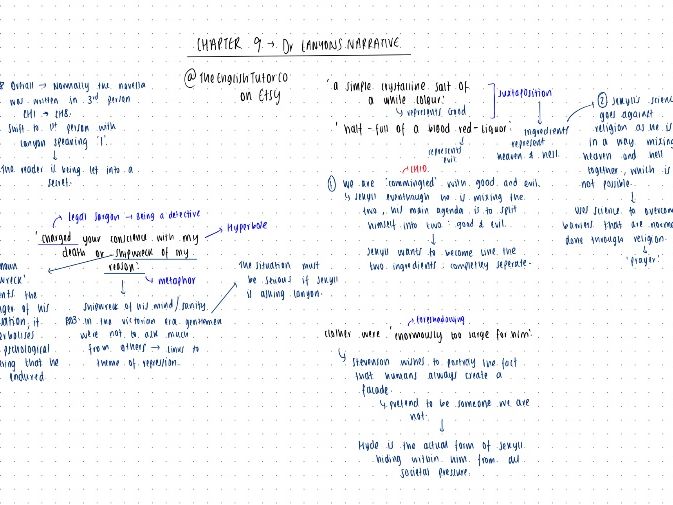 CHAPTER 9 → Dr LANYONS NARRATIVE
@TheEnglishTutorCo
on Etsy
Overall → Normally the novella
was written in 3rd person
CH1 → CH8.
Shift to 1st person with
Lanyon speaking 'I'.
↓
The reader is being let into a
secret.
↱ Legal Jargon → Being a detective
Hyperbole
'charged your conscience with my
death or shipwreck of my
reason.'
↳ metaphor
shipwreck of his mind/sanity.
In the Victorian era gentlemen
were not to ask much
from others → links to
theme of repression.
The situation must
be serious if Jekyll
is asking Lanyon.
noun
the
of his
it
psychological
that he
endured
'a simple crystalline salt of
a white colour.'
↳ represents Good
'half-full of a blood red-liquor'
represents
evil.
Juxtaposition
ingredients
represent
heaven & hell.
② Jekyll's science
goes against
religion as he is
in a way mixing
heaven and hell
together, which is
not possible.
↓
uses science to overcome
barriers that are
done through religion.
'prayer'
CH10
① We are 'commingled' with good and evil.
↳ Jekyll eventhough he is mixing the
two, his main agenda is to split
himself into two: good & evil.
↓
Jekyll wants to become like the
two ingredients: completley seperate.
foreshadowing
clothes were 'enormously too large for him'.
↳ Stevenson wishes to portray the fact
that humans always create a
facade.
↳ pretend to be someone we are
not.
↓
Hyde is the actual form of Jekyll
hiding within him from all
societal pressure.